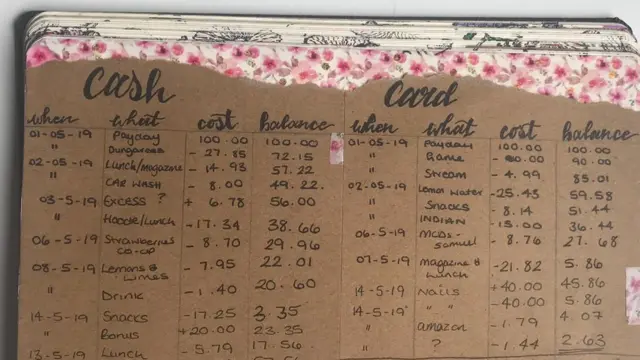 Cash
when what cost balance
01-05-19 Payday 100.00 100.00
" Dungarees - 27.85 72.15
02-05-19 Lunch/magazine - 14.93 57.22
" CAR WASH - 8.00 49.22
03-5-19 Excess ? + 6.78 56.00
" Hoodie/Lunch -17.34 38.66
06-5-19 Strawberries co-op - 8.70 29.96
08-5-19 Lemons & Limes - 7.95 22.01
" Drink -1.40 20.60
14-5-19 Snacks -17.25 3.35
" Bonus +20.00 23.35
13-5-19 Lunch - 5.79 17.56
Card
when what cost balance
01-05-19 Payday 100.00 100.00
" Game 90.00
" Stream - 4.99 85.01
02-05-19 Lemon water -25.43 59.58
" Snacks - 8.14 51.44
" INDIAN -15.00 36.44
06-5-19 MCDs - Samuel - 8.76 27.68
07-5-19 magazine & Lunch -21.82 5.86
14-5-19 Nails +40.00 45.86
14-5-19 " " -40.00 5.86
" amazon -1.79 4.07
" ? -1.44 2.63